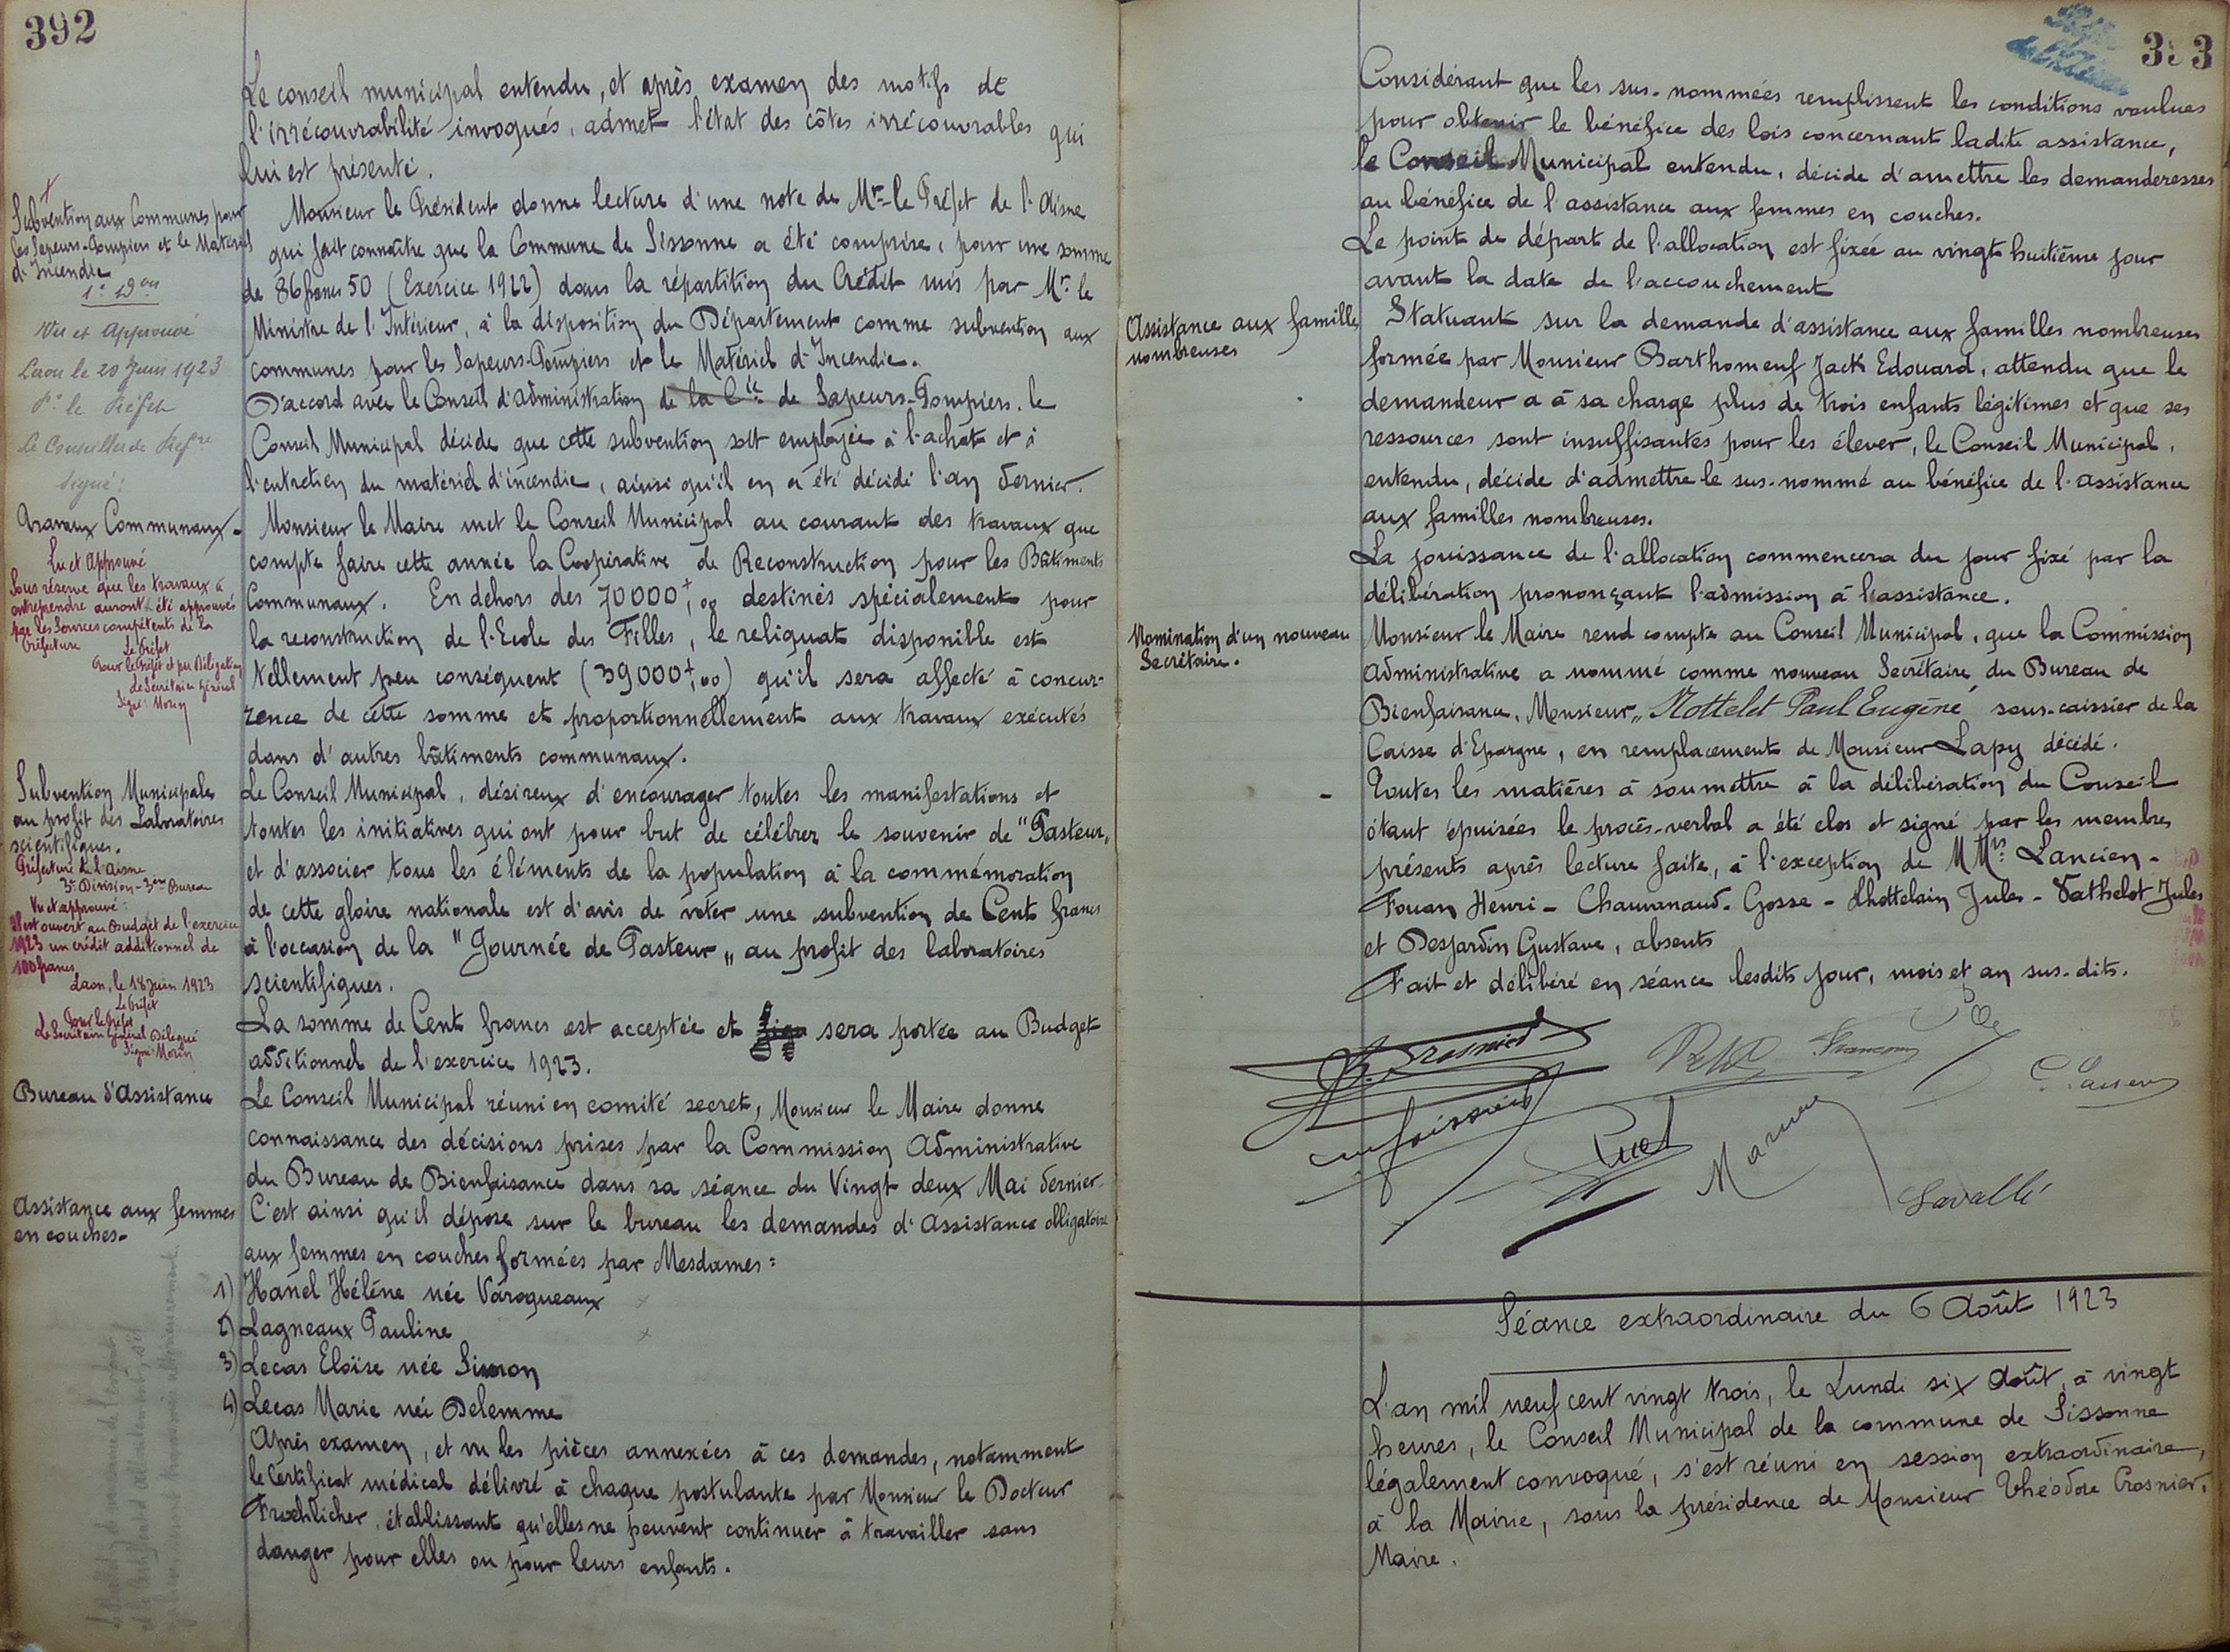 392
Le conseil municipal entendu, et après examen des motifs de
l'irrécouvrabilité invoqués, admet l'état des côtes irrécouvrables qui
lui est présenté.
Subvention aux Communes pour
les Sapeurs-Pompiers et le Matériel
d'Incendie
1e Don
Vu et Approuvé
Laon le 20 Juin 1923
Pr le Préfet
Le Conseiller de Préfre
Signé:
Monsieur le Président donne lecture d'une note de Mr le Préfet de l'Aisne
qui fait connaître que la Commune de Sissonne a été comprise, pour une somme
de 86 francs 50 (Exercice 1922) dans la répartition du Crédit mis par Mr le
Ministre de l'Intérieur, à la disposition du Département comme subvention aux
communes pour les Sapeurs-Pompiers et le Matériel d'Incendie.
D'accord avec le Conseil d'administration de la Cie de Sapeurs-Pompiers, le
Conseil Municipal décide que cette subvention soit employée à l'achat et à
l'entretien du matériel d'incendie, ainsi qu'il en a été décidé l'an dernier.
Travaux Communaux.
Lu et Approuvé
Sous réserve que les travaux à
entreprendre auront été approuvés
par les Services compétents de la
Préfecture
Le Préfet
Pour le Préfet et par Délégation
Le Secrétaire Général
Signé: Morin
Monsieur le Maire met le Conseil Municipal au courant des travaux que
compte faire cette année la Coopérative de Reconstruction pour les Bâtiments
Communaux. En dehors des 70000f,00 destinés spécialement pour
la reconstruction de l'Ecole des Filles, le reliquat disponible est
tellement peu conséquent (39000f,00) qu'il sera affecté à concur-
rence de cette somme et proportionnellement aux travaux exécutés
dans d'autres bâtiments communaux.
Subvention Municipale
au profit des Laboratoires
scientifiques.
Préfecture de l'Aisne
3e Division - 3ème Bureau
Vu et approuvé:
Il est ouvert au Budget de l'exercice
1923 un crédit additionnel de
100 francs
Laon, le 18 Juin 1923
Le Préfet
Pour le Préfet
Le Secrétaire Général Délégué
Signé: Morin
Le Conseil Municipal, désireux d'encourager toutes les manifestations et
toutes les initiatives qui ont pour but de célébrer le souvenir de "Pasteur„
et d'associer tous les éléments de la population à la commémoration
de cette gloire nationale est d'avis de voter une subvention de Cent francs
à l'occasion de la "Journée de Pasteur„ au profit des laboratoires
scientifiques.
La somme de Cent francs est acceptée et sera portée au Budget
additionnel de l'exercice 1923.
Bureau d'Assistance
Le Conseil Municipal réuni en comité secret, Monsieur le Maire donne
connaissance des décisions prises par la Commission Administrative
du Bureau de Bienfaisance dans sa séance du Vingt deux Mai dernier.
Assistance aux femmes
en couches.
C'est ainsi qu'il dépose sur le bureau les demandes d'Assistance obligatoire
aux femmes en couches formées par Mesdames:
1) Hanel Hélène née Varoqueaux
2) Lagneaux Pauline
3) Lecas Eloïse née Simon
4) Lecas Marie née Delemme
Après examen, et vu les pièces annexées à ces demandes, notamment
le certificat médical délivré à chaque postulante par Monsieur le Docteur
Froehlicher, établissant qu'elles ne peuvent continuer à travailler sans
danger pour elles ou pour leurs enfants.
393
Considérant que les sus-nommées remplissent les conditions voulues
pour obtenir le bénéfice des lois concernant ladite assistance,
le Conseil Municipal entendu, décide d'amettre les demanderesses
au bénéfice de l'assistance aux femmes en couches.
Le point de départ de l'allocation est fixée au vingt huitième jour
avant la date de l'accouchement
Assistance aux familles
nombreuses
Statuant sur la demande d'assistance aux familles nombreuses
formée par Monsieur Barthomeuf Jack Edouard, attendu que le
demandeur a à sa charge plus de trois enfants légitimes et que ses
ressources sont insuffisantes pour les élever, le Conseil Municipal,
entendu, décide d'admettre le sus-nommé au bénéfice de l'assistance
aux familles nombreuses.
La jouissance de l'allocation commencera du jour fixé par la
délibération prononçant l'admission à l'assistance.
Nomination d'un nouveau
Secrétaire.
Monsieur le Maire rend compte au Conseil Municipal, que la Commission
Administrative a nommé comme nouveau Secrétaire du Bureau de
Bienfaisance, Monsieur Nottelet Paul Eugène sous-caissier de la
Caisse d'Epargne, en remplacement de Monsieur Lapy décédé.
Toutes les matières à soumettre à la délibération du Conseil
étant épuisées le procès-verbal a été clos et signé par les membres
présents après lecture faite, à l'exception de MMrs Lancien-
Fouan Henri - Chauvanaud - Gosse - Lhottelain Jules - Vathelot Jules
et Desjardin Gustave, absents
Fait et délibéré en séance lesdits jour, mois et an sus-dits.
Crosnier
Lavallé
Séance extraordinaire du 6 Août 1923
L'an mil neuf cent vingt trois, le Lundi six Août, à vingt
heures, le Conseil Municipal de la commune de Sissonne
légalement convoqué, s'est réuni en session extraordinaire,
à la Mairie, sous la présidence de Monsieur Théodore Crosnier,
Maire.